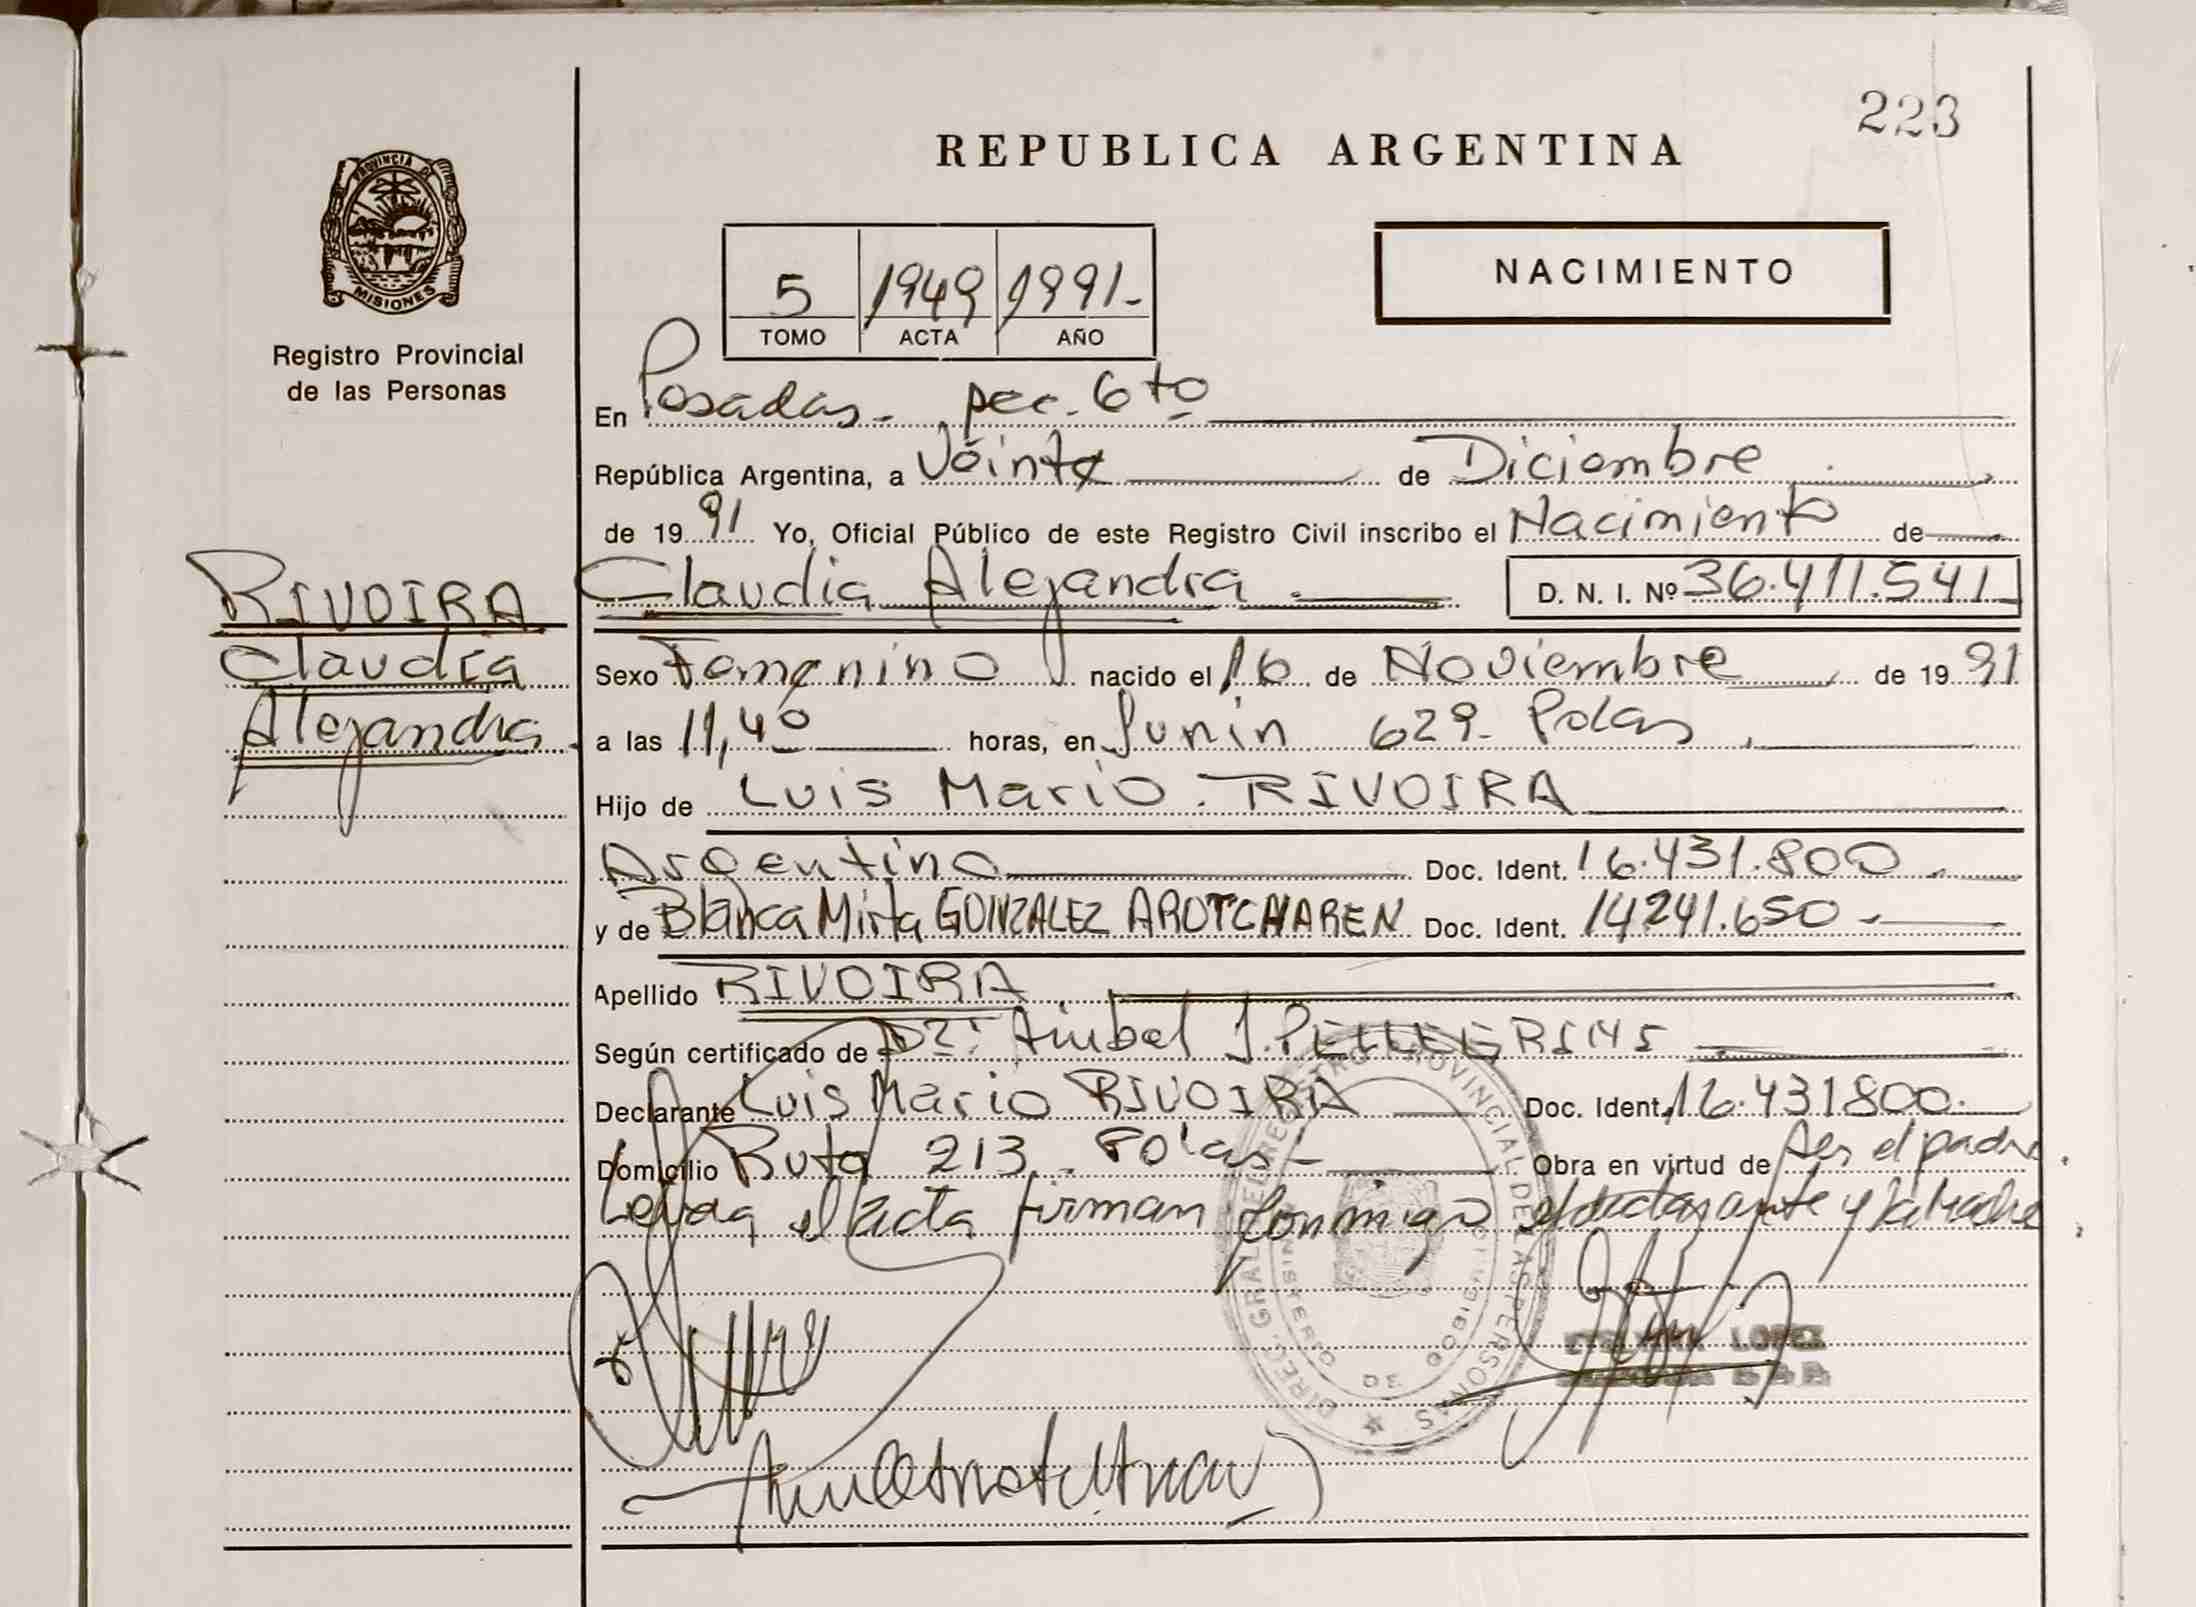 223
REPUBLICA ARGENTINA
PROVINCIA DE MISIONES
Registro Provincial
de las Personas
5 1949 1991-
TOMO ACTA AÑO
NACIMIENTO
En Posadas - sec. 6to
República Argentina, a Veinte de Diciembre
de 1991 Yo, Oficial Público de este Registro Civil inscribo el Nacimiento de
Claudia Alejandra D. N. I. Nº 36.411.541
RIVOIRA
Claudia
Alejandra
Sexo Femenino nacido el 16 de Noviembre de 1991
a las 11,40 horas, en Junin 629 - Pdas
Hijo de Luis Mario RIVOIRA
Argentino Doc. Ident. 16.431.800
y de Blanca Mirta GONZALEZ AROTCHAREN Doc. Ident. 14241.650
Apellido RIVOIRA
Según certificado de Dr. Anibal J. PELLEGRINI
Declarante Luis Mario RIVOIRA Doc. Ident. 16.431800
Domicilio Ruta 213 - Pdas - Obra en virtud de ser el padre
Leyda el acta firman conmigo el declarante y la madre
DIREC. GRAL. DEL REGISTRO PROVINCIAL DE LAS PERSONAS
MINISTERIO DE GOBIERNO
LOPEZ